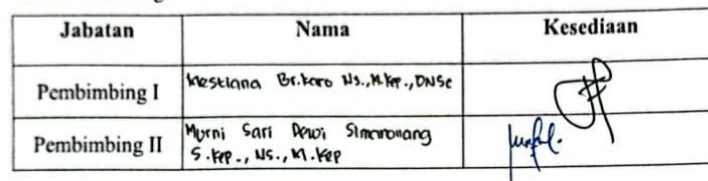 Jabatan Nama Kesediaan
Pembimbing I Mestiana Br.Karo Ns.,M.Kep.,DNSc
Pembimbing II Murni Sari Dewi Simaronang
S.Kep., Ns., M.Kep